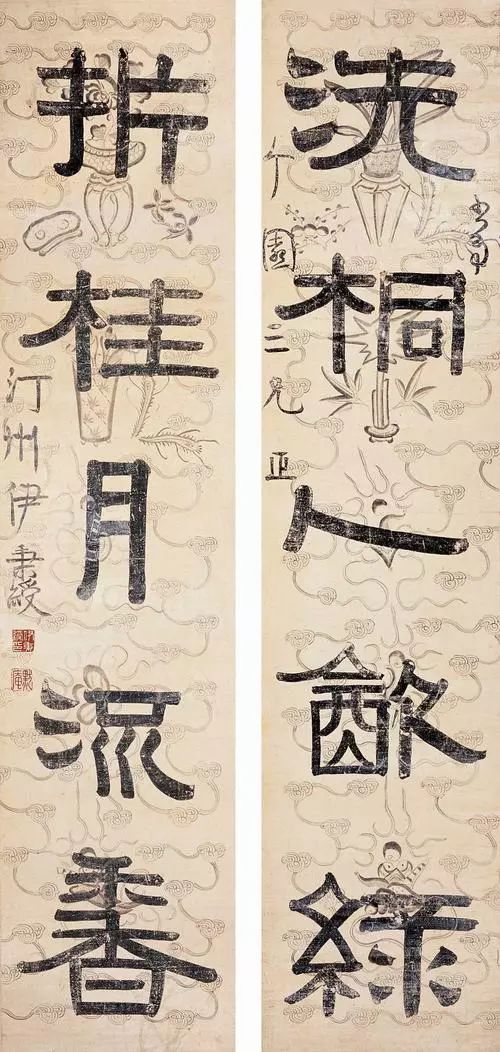 洗桐人㱃綠
園三兄正
折桂月流香
汀州伊秉綬